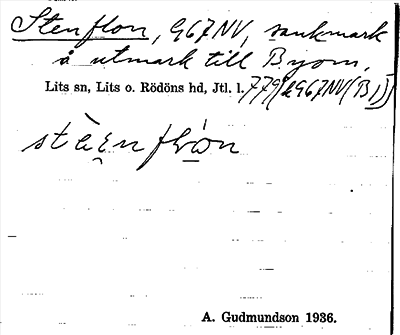 Stenflon, 967NV, sankmark
å utmark till Byom,
Lits sn, Lits o. Rödöns hd, Jtl. l.
stæ̀e̯nfló̱n
A. Gudmundson 1936.